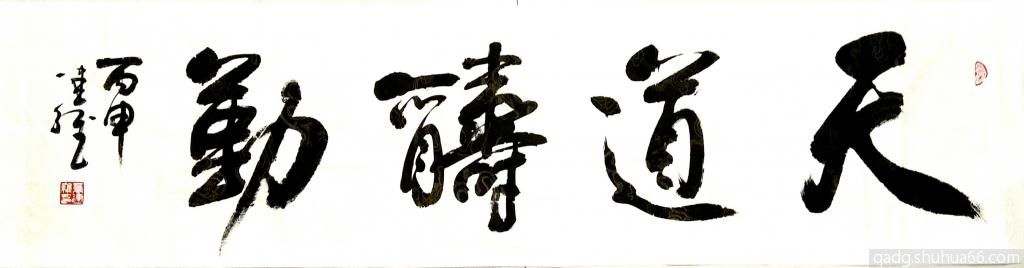 天道醻勤
丙申
qadg.shuhua66.com